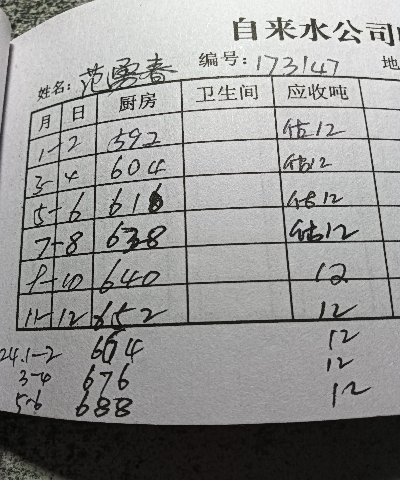 自来水公司
姓名: 范勇春 编号: 173147 地
月 日 厨房 卫生间 应收吨
1-2 592 估12
3-4 604 估12
5-6 616 估12
7-8 628 估12
9-10 640 12
11-12 652 12
24.1-2 664 12
3-4 676 12
5-6 688 12